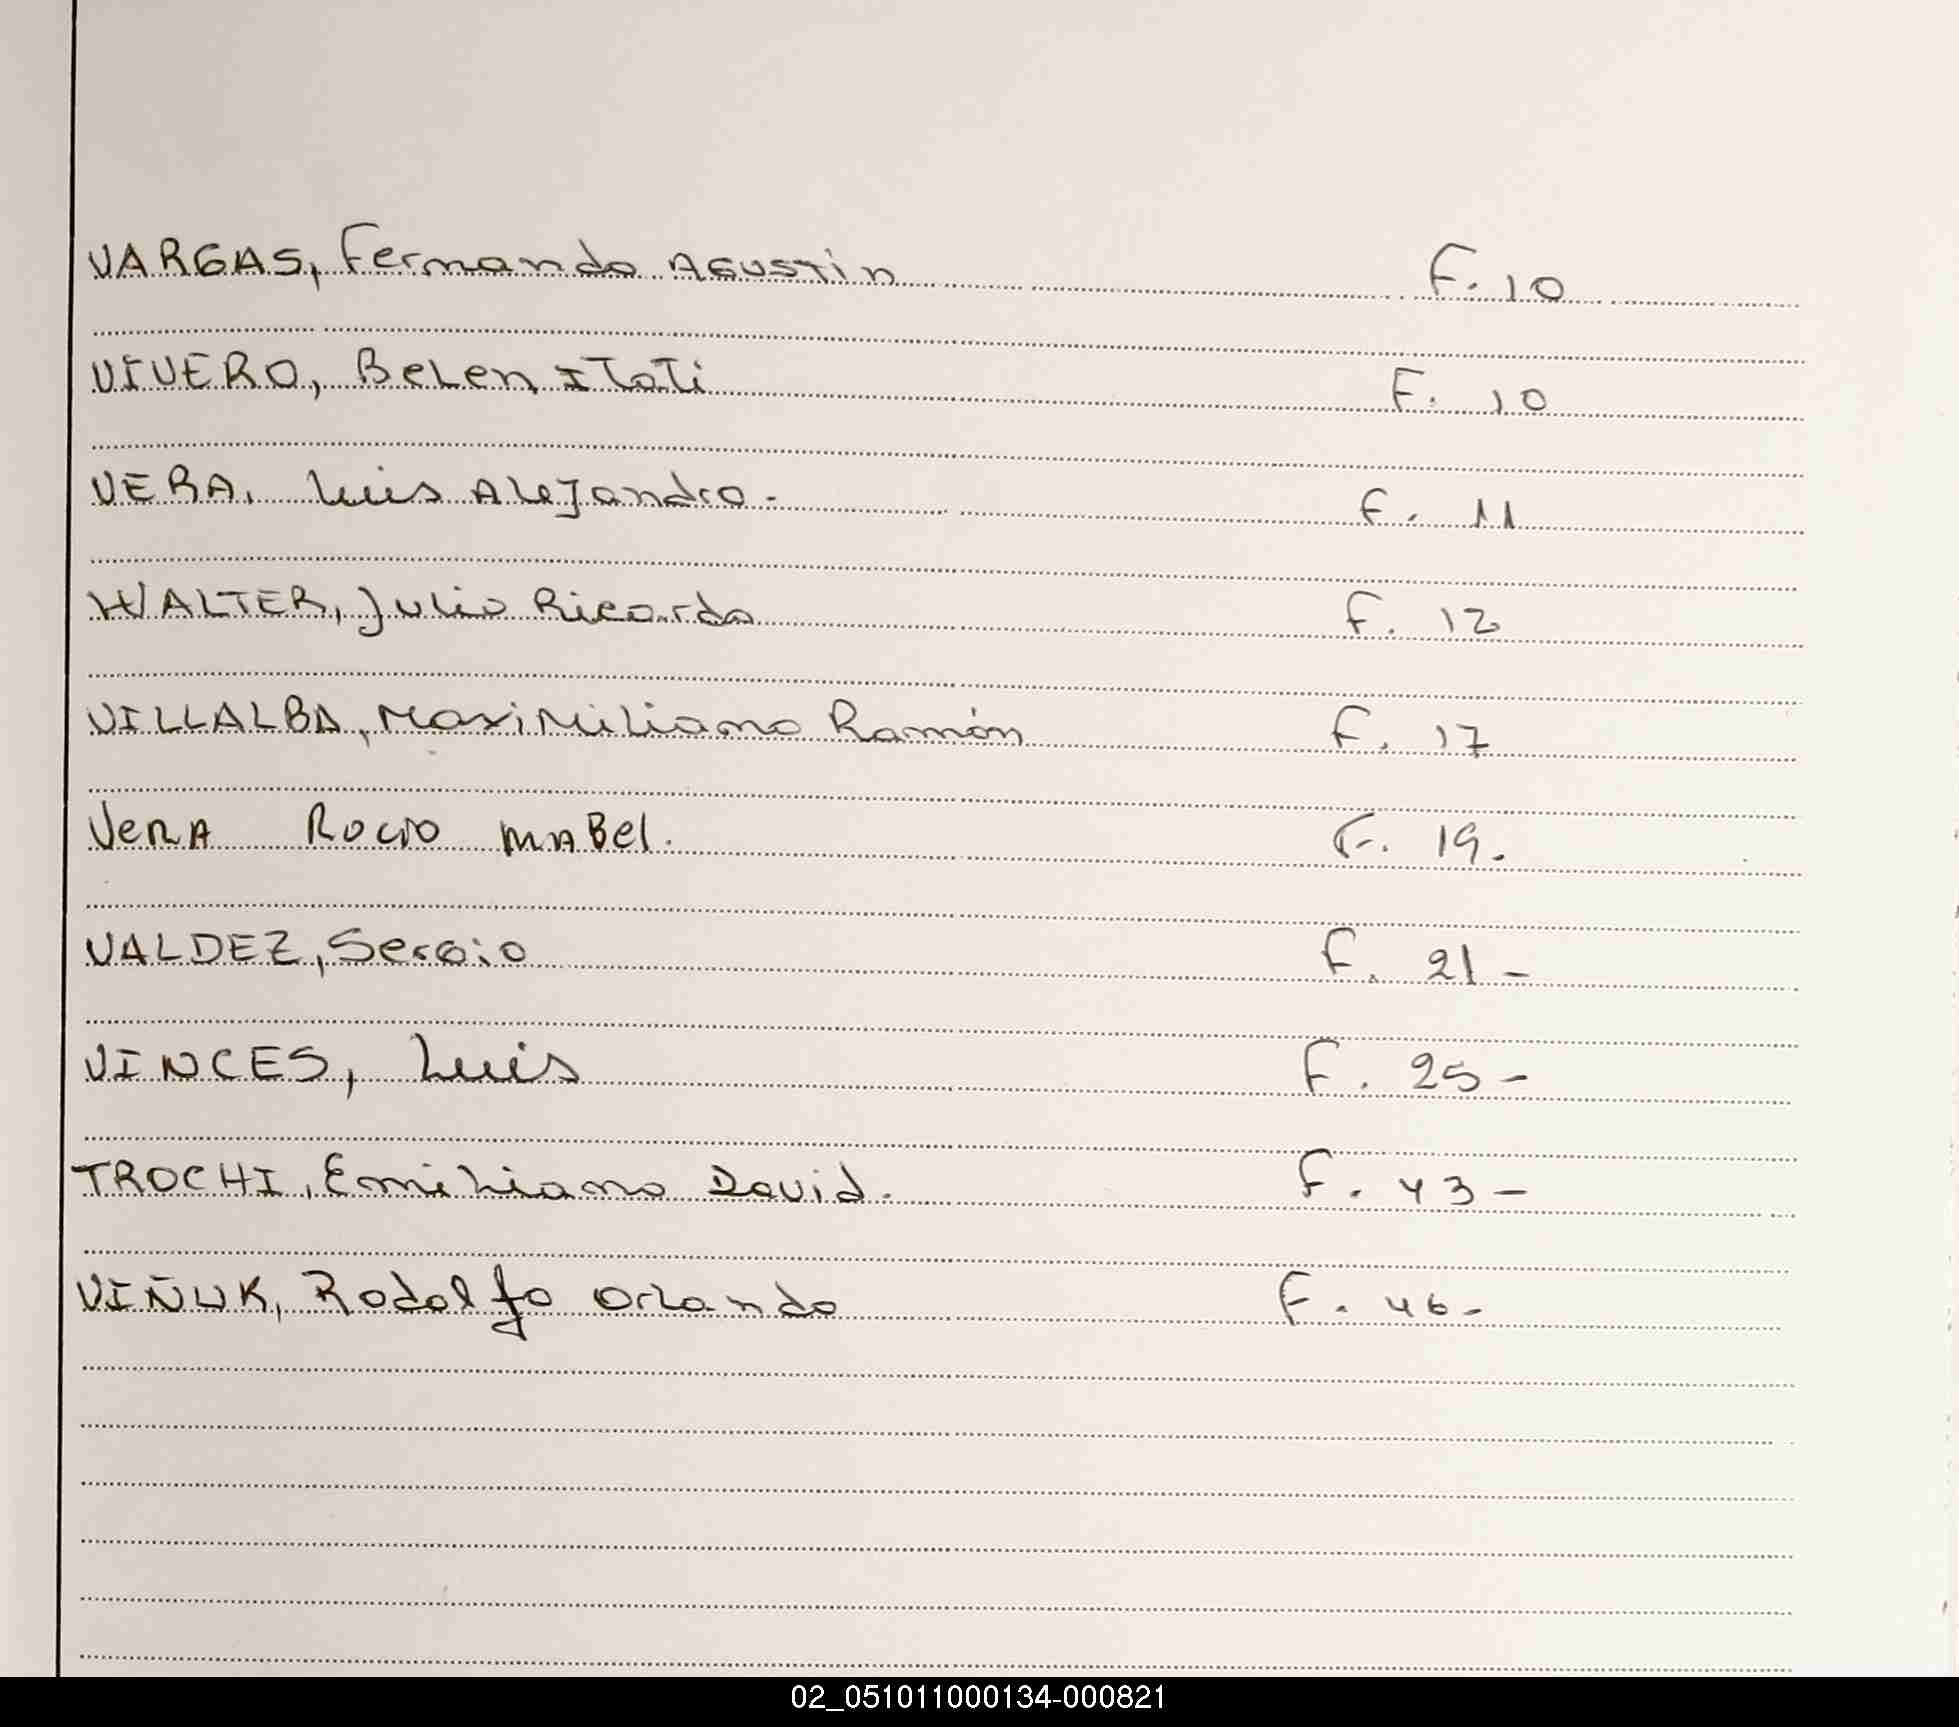 VARGAS, Fernando Agustin F. 10
VIVERO, Belen Itati F. 10
VERA, Luis Alejandro. F. 11
WALTER, Julio Ricardo F. 12
VILLALBA, Maximiliano Ramón F. 17
Vera Rocio Mabel. F. 19.
VALDEZ, Sergio F. 21-
VINCES, Luis F. 25-
TROCHI, Emiliano David. F. 43-
VIÑUK, Rodolfo Orlando F. 46-
02_051011000134-000821